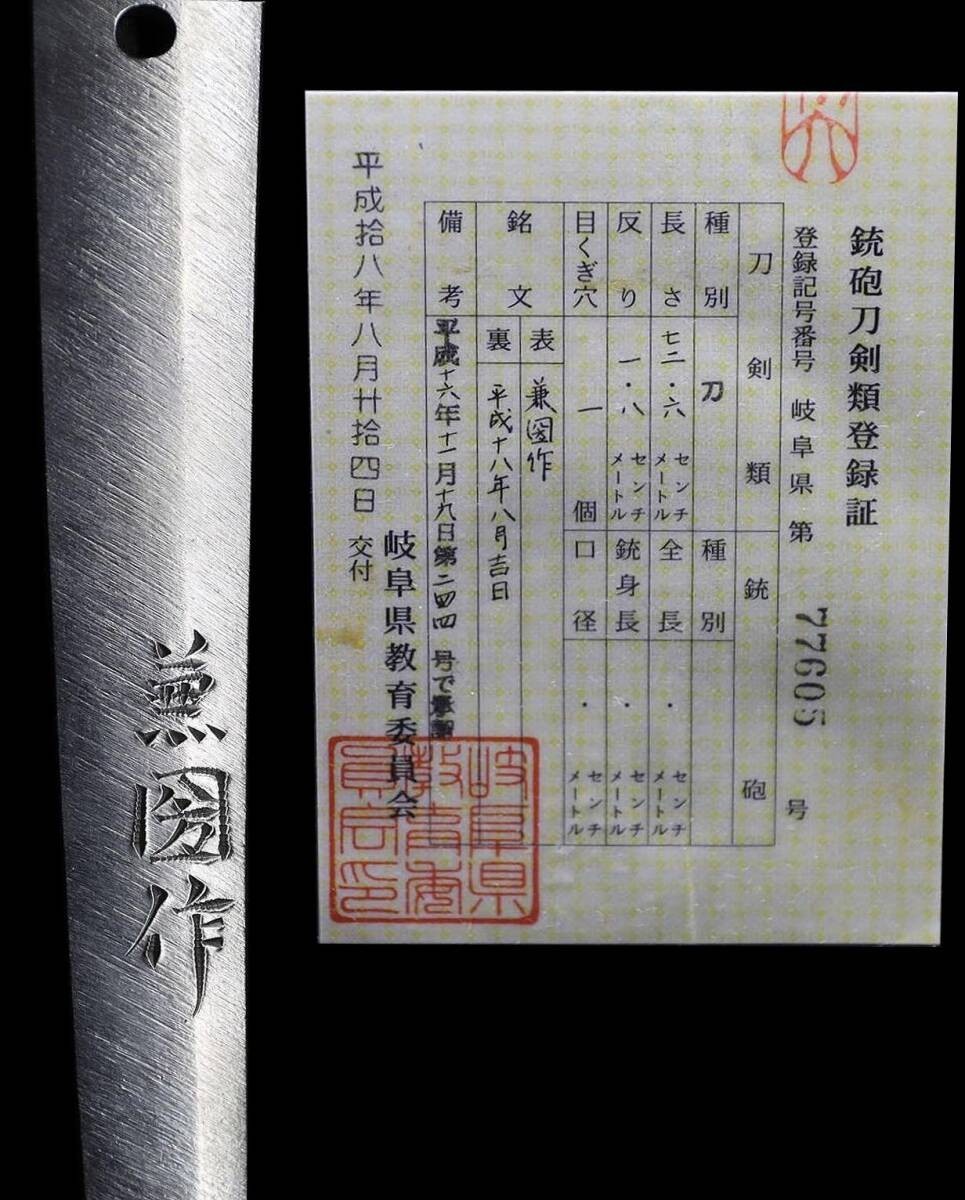 兼圀作
銃砲刀剣類登録証
登録記号番号 岐阜県 第 77605 号
刀剣類 銃砲
種別 刀 種別
長さ 七二・六 センチメートル 全長 ・ センチメートル
反り 一・八 センチメートル 銃身長 ・ センチメートル
目くぎ穴 一 個 口径 ・ センチメートル
銘文 表 兼圀作
裏 平成十八年八月吉日
備考 平成十六年十一月十九日第二四四号で承認
岐阜県教育委員会
平成拾八年八月廿拾四日 交付
岐阜県教育委員会印